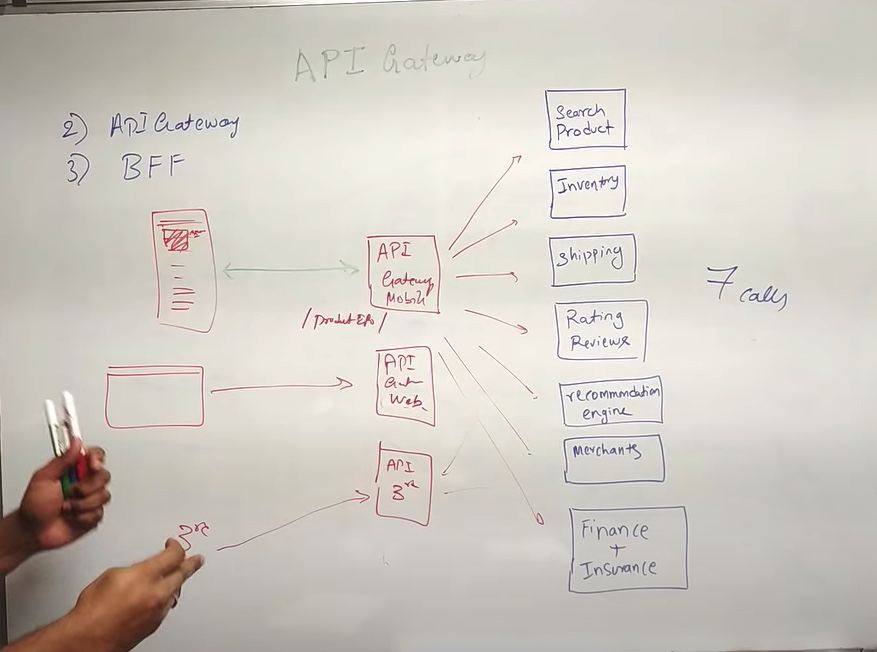 API Gateway
2) API Gateway
3) BFF
API
Gateway
Mobile
/Product
API
Web
API
3rd
3rd
Search
Product
Inventory
Shipping
Rating
Reviews
recommndation
engine
Merchants
Finance
+
Insurance
7 calls